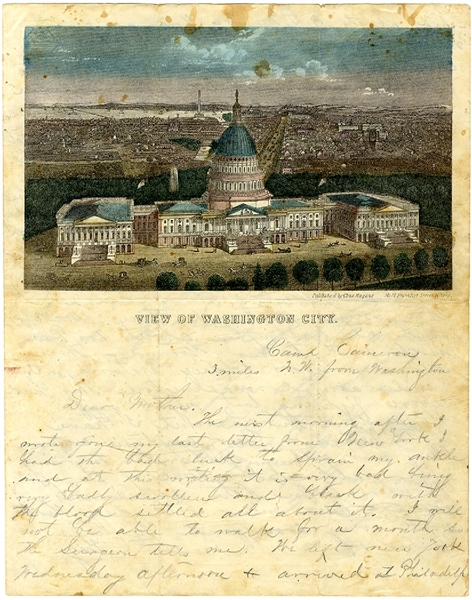 Published by Chas Magnus
VIEW OF WASHINGTON CITY.
Camp Cameron
3 miles N.W. from Washington
Dear Mother.
The next morning after I
wrote you my last letter from New York I
had the bad luck to sprain my ankle
and at this writing it is very bad being
very badly swollen and black with
the blood settled all about it. I will
not be able to walk for a month so
the Surgeon tells me. We left New York
Wednesday afternoon & arrived at Philadelp